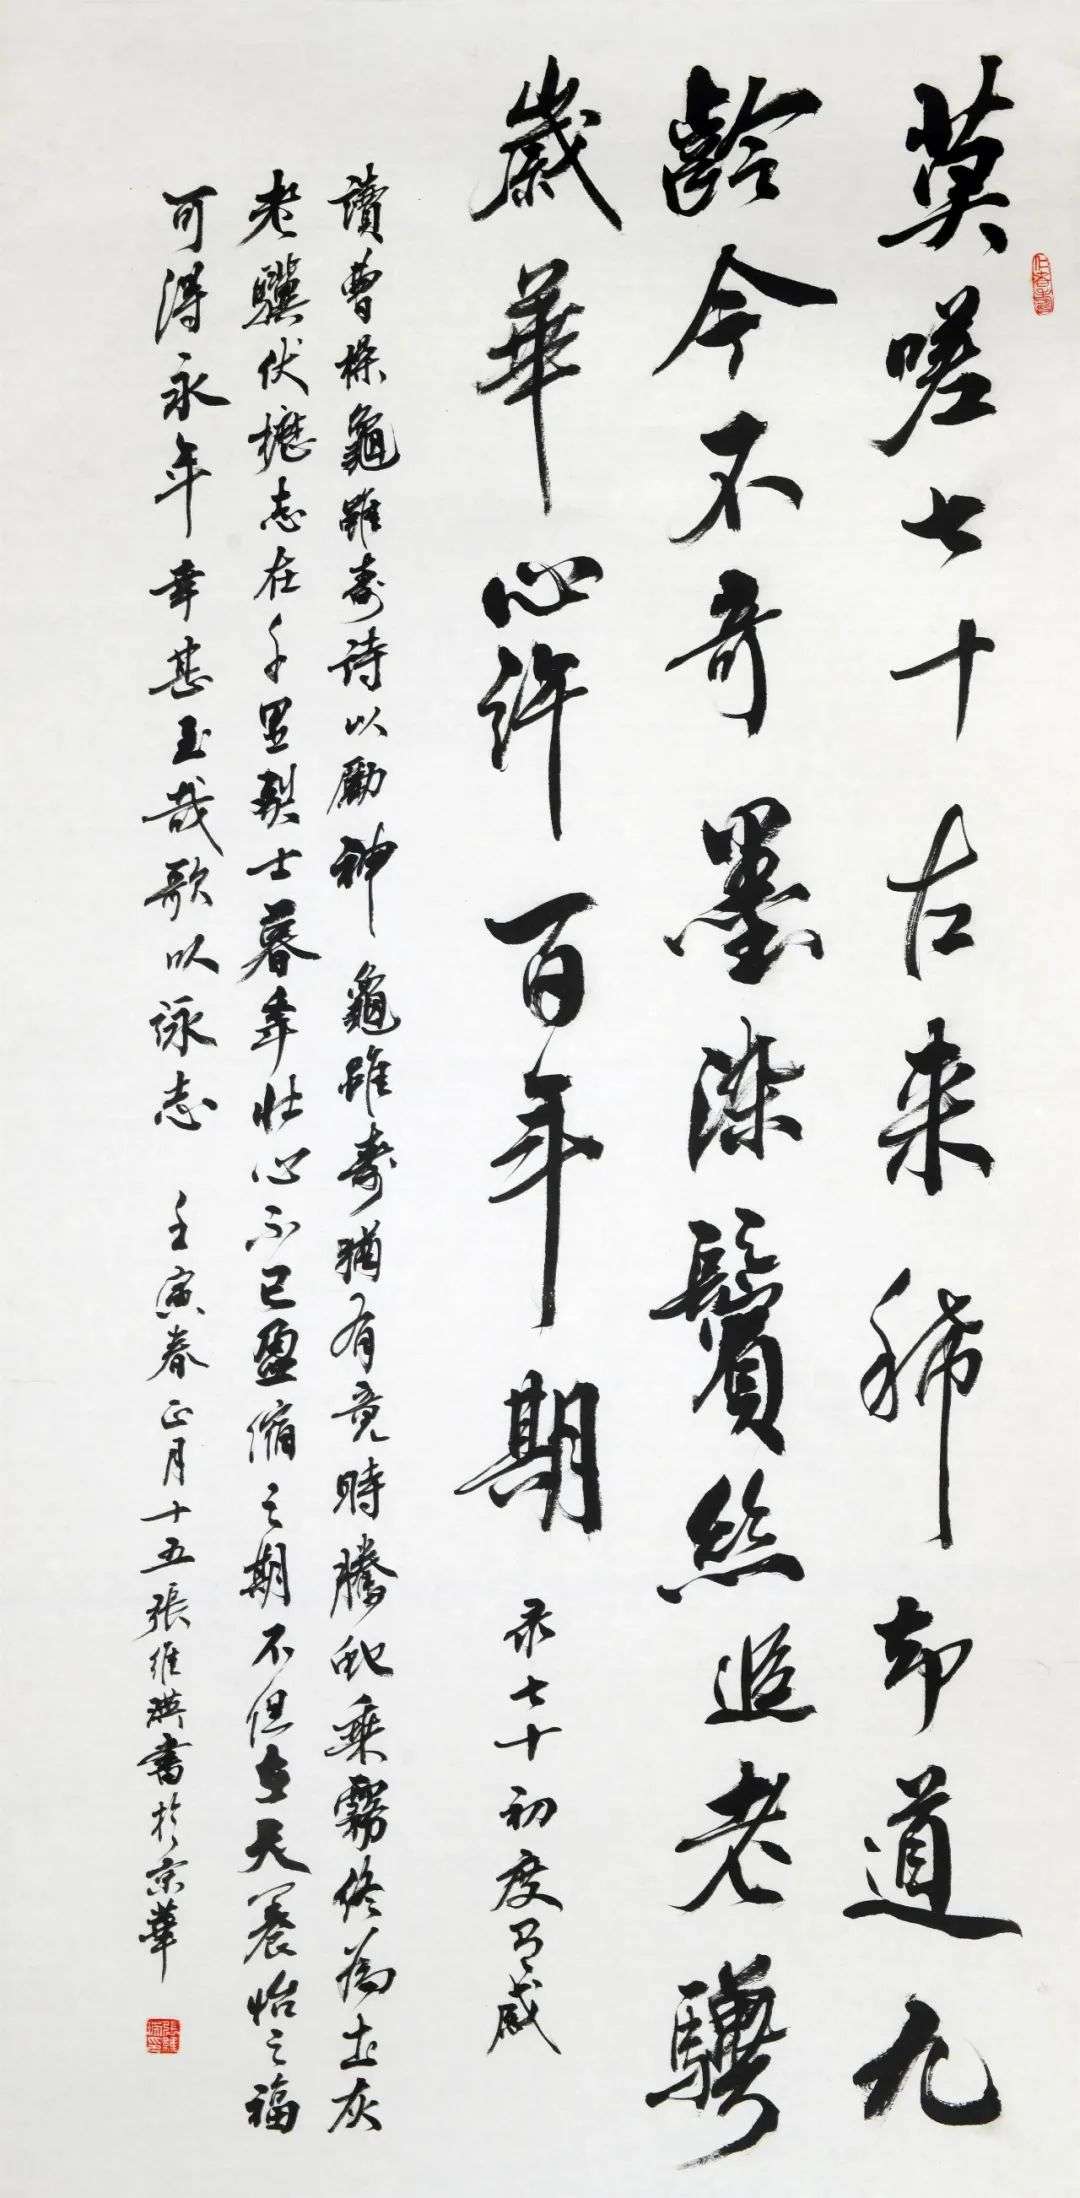 莫嗟七十古来稀却道九
齡今不奇墨染鬢絲追老驥
歲華心許百年期 录七十初度有感
讀曹操龜雖壽詩以勵神 龜雖壽猶有竟時騰虵乘霧终為土灰
老驥伏櫪志在千里烈士暮年壯心不已盈縮之期不但在天養怡之福
可得永年幸甚至哉歌以詠志 壬寅春正月十五張維瑛書於京華